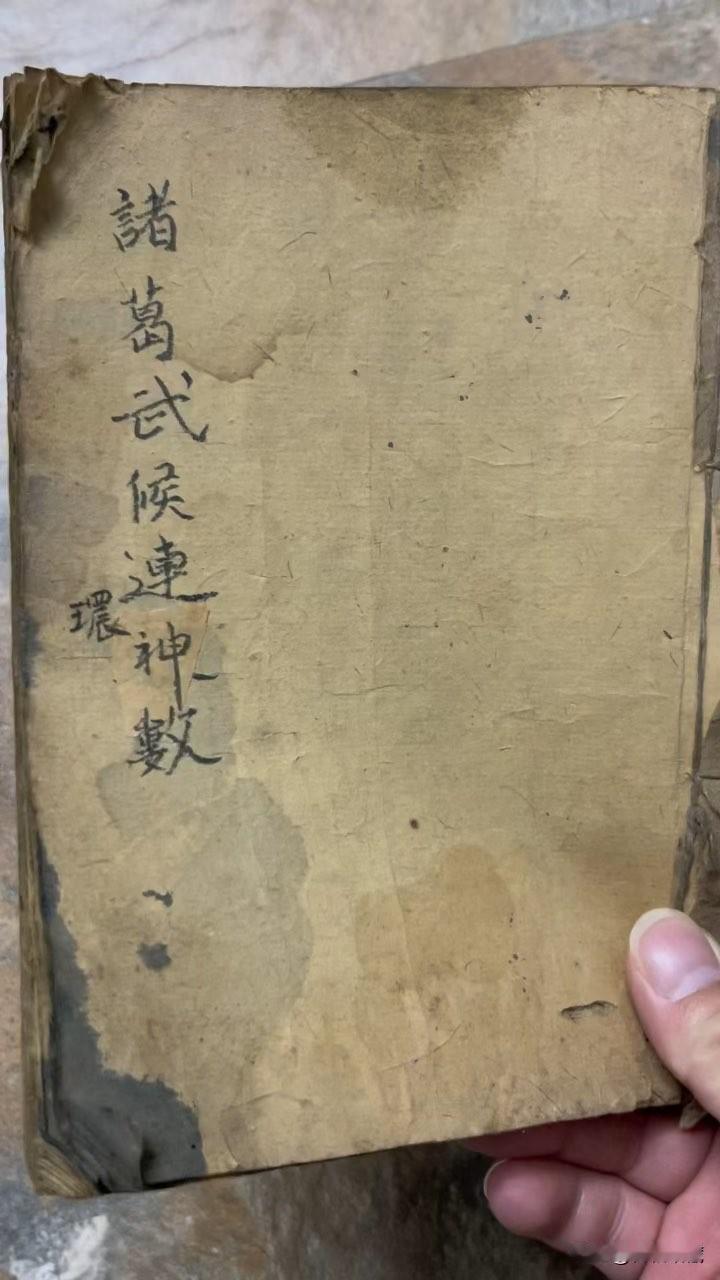 諸葛武候連神數
環